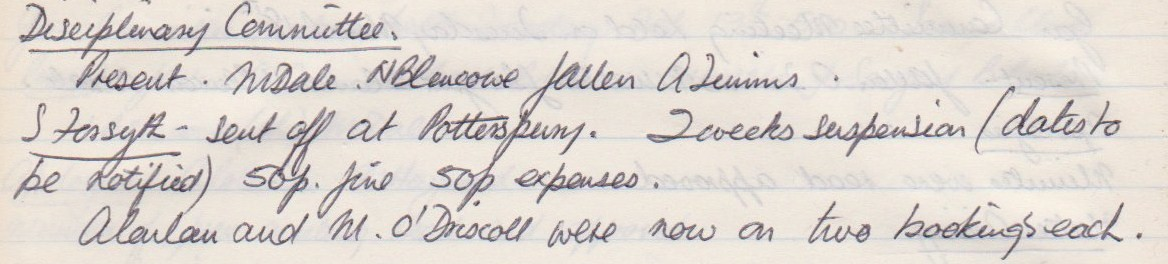 Disciplinary Committee.
Present. M Dale. N Blencowe J Allen A Timms.
S Forsyth - sent off at Potterspury. 2 weeks suspension (dates to
be notified) 50p. fine 50p expenses.
and M. O'Driscoll were now on two bookings each.